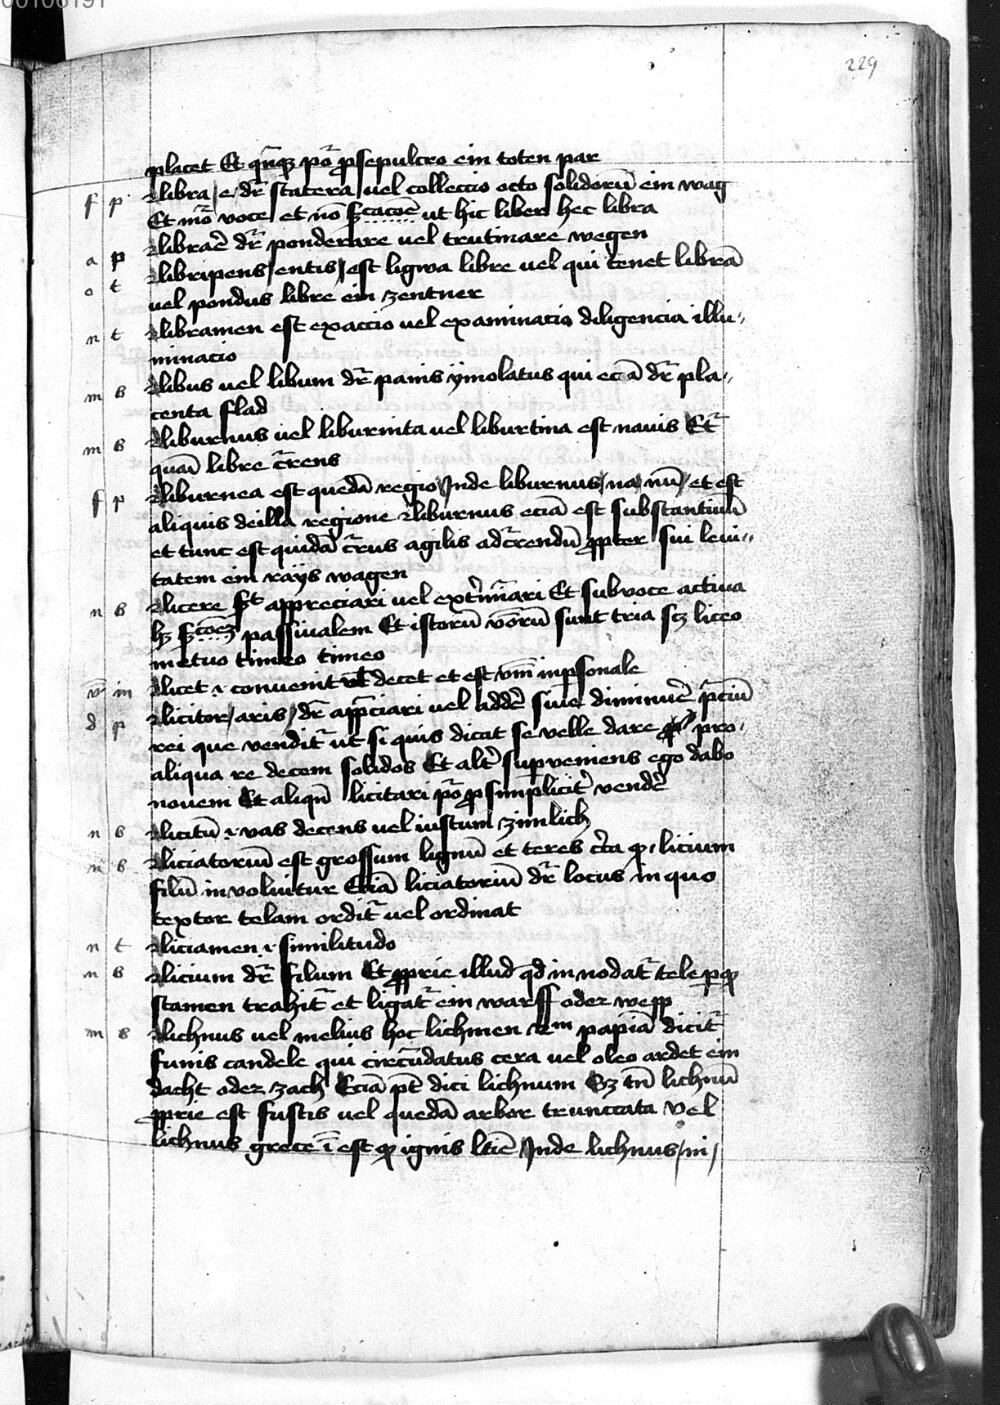 229
placet Et qn̄qꝫ pō p sepulcro ein toten par
f p Libra / e / dr̄ statera / uel colleccio octo solidorū ein wag
Et mō voce et nō st̄cacōē ut hic liber hec libra
Librar̄e dr̄ ponderare uel trutinare wegen
a p Libripens / entis / est ligwa libre uel qui tenet librā
o t uel pondus libre ein zentner
n t Libramen est exaccio uel examinacio diligencia illu〃
minacio
m s Libus uel libum dr̄ panis ymolatus qui eciā dr̄ pla〃
centa flad
m s Liburnus uel liburnita uel liburtina est nauis Et̄
quā libre c̄rens
f p Liburnea est quedā regio Inde liburnus / na / nū / et est
aliquis de illa regione Liburnus eciā est substantiuū
et tunc est quidā c̄rus agilis ad c̄rendū ꝓpter sui leui〃
tatem ein rayß wagen
n s Licere st̄ appreciari uel extīmari Et sub voce actiua
hꝫ st̄cōeꝫ passiualem Et istorū v̄borū sunt tria scꝫ liceo
metuo timeo timeo
v̄ in Licet .i. conuenit uel decet et est v̄m inpersonale
d p Licitor / aris / dr̄ app̄ciari uel addē siue diminuē p̄ciū
rei que venditr̄ ut si quis dicat se velle dare pro
aliqua re decem solidos Et altr̄ superueniens ego dabo
nouem Et aliqn̄ licitari pō p simplicitr̄ vendē
n s Licitū .i. vas decens uel iustum zimlich
n s Liciatoriū est grossum lignū et teres c̄ca qꝫ licium
filū in voluitur Eciā liciatoriū dr̄ locus in quo
textor telam orditr̄ uel ordinat
n t Liciamen .i. similitudo
n s Licium dr̄ filum Et ꝓprie illud qd̄ in nodatr̄ tele p qꝫ
stamen trahitr̄ et ligatr̄ ein warff oder wepp
m s Lichnus uel melius hoc lichmen scd̄m papiā dicitr̄
funis candele qui circūdatus cera uel oleo ardet ein
dacht oder zach Eciā pt̄ dici lichnum Sꝫ tn̄ lichnū
ꝓprie est fustis uel quedā arbor trunccata vel
lichnus grece ī est qꝫ ignis ltīe Inde lichnus / ni /